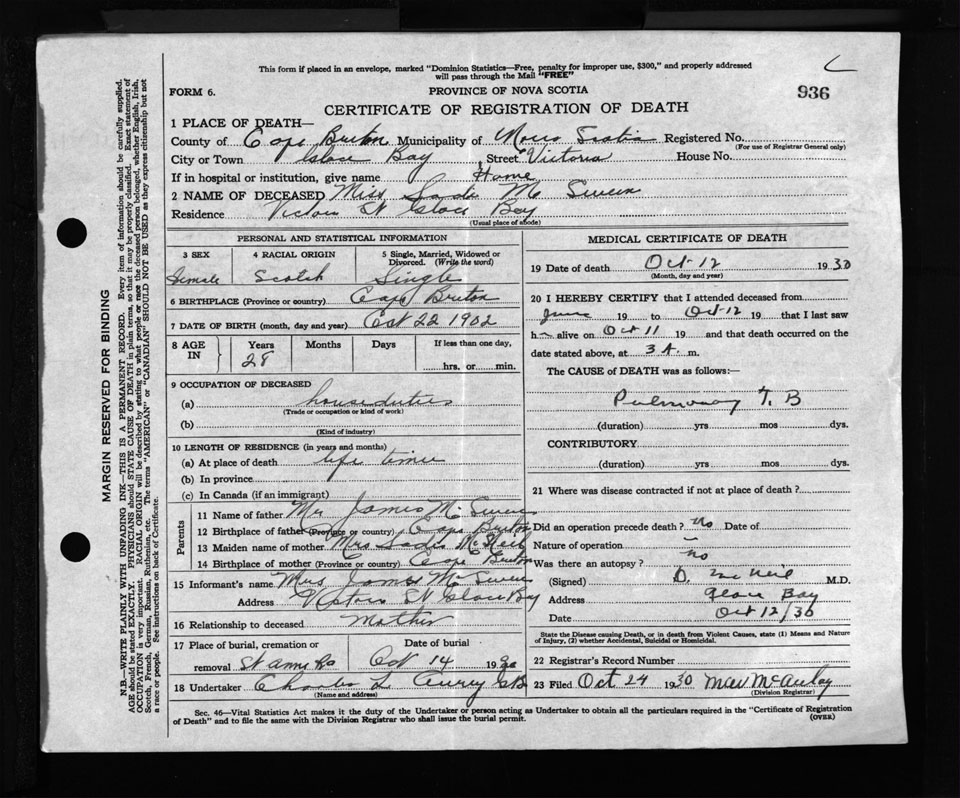 This form if placed in an envelope, marked "Dominion Statistics—Free, penalty for improper use, $300," and properly addressed
will pass through the Mail "FREE"
FORM 6.
PROVINCE OF NOVA SCOTIA
936
CERTIFICATE OF REGISTRATION OF DEATH
1 PLACE OF DEATH—
County of Cape Breton Municipality of Nova Scotia Registered No.
(For use of Registrar General only)
City or Town Glace Bay Street Victoria House No.
If in hospital or institution, give name Home
2 NAME OF DECEASED Miss Sadie Mc Sween
Residence Victoria St Glace Bay
(Usual place of abode)
PERSONAL AND STATISTICAL INFORMATION
3 SEX 4 RACIAL ORIGIN 5 Single, Married, Widowed or Divorced. (Write the word)
Female Scotch Single
6 BIRTHPLACE (Province or country) Cape Briton
7 DATE OF BIRTH (month, day and year) Oct 22 1902
8 AGE IN Years Months Days If less than one day,
28 hrs. or min.
9 OCCUPATION OF DECEASED
(a) houseduties
(Trade or occupation or kind of work)
(b)
(Kind of industry)
10 LENGTH OF RESIDENCE (in years and months)
(a) At place of death life time
(b) In province
(c) In Canada (if an immigrant)
Parents
11 Name of father Mr James Mc Sween
12 Birthplace of father (Province or country) Cape Briton
13 Maiden name of mother Mrs Sadie McNeil
14 Birthplace of mother (Province or country) Cape Briton
15 Informant's name Mrs James Mc Sween
Address Victoria St Glace Bay
16 Relationship to deceased Mother
17 Place of burial, cremation or Date of burial
removal St Anns Oct 14 1930
18 Undertaker Charles L Curry G.B
(Name and address)
MEDICAL CERTIFICATE OF DEATH
19 Date of death Oct-12 1930
(Month, day and year)
20 I HEREBY CERTIFY that I attended deceased from
June 19 to Oct-12 19 that I last saw
h alive on Oct 11 19 and that death occurred on the
date stated above, at 3 A. m.
The CAUSE of DEATH was as follows:—
Pulmonary T. B
(duration) yrs mos dys.
CONTRIBUTORY
(duration) yrs mos dys.
21 Where was disease contracted if not at place of death?
Did an operation precede death? no Date of
Nature of operation —
Was there an autopsy? no
(Signed) D. McNeil M.D.
Address Glace Bay
Date Oct 12/30
State the Disease causing Death, or in death from Violent Causes, state (1) Means and Nature
of Injury, (2) whether Accidental, Suicidal or Homicidal.
22 Registrar's Record Number
23 Filed Oct 24 1930 McAulay
(Division Registrar)
Sec. 46—Vital Statistics Act makes it the duty of the Undertaker or person acting as Undertaker to obtain all the particulars required in the "Certificate of Registration
of Death" and to file the same with the Division Registrar who shall issue the burial permit.
(OVER)
MARGIN RESERVED FOR BINDING
N.B.—WRITE PLAINLY WITH UNFADING INK—THIS IS A PERMANENT RECORD. Every item of information should be carefully supplied.
AGE should be stated EXACTLY. PHYSICIANS should STATE CAUSE OF DEATH in plain terms, so that it may be properly classified. Exact statement of
OCCUPATION is very important. RACIAL ORIGIN will be described by stating to what people or race the deceased person belonged, whether English, Irish,
Scotch, French, German, Russian, Ruthenian, etc. The terms "AMERICAN" or "CANADIAN" SHOULD NOT BE USED as they express citizenship but not
a race or people. See instructions on back of Certificate.